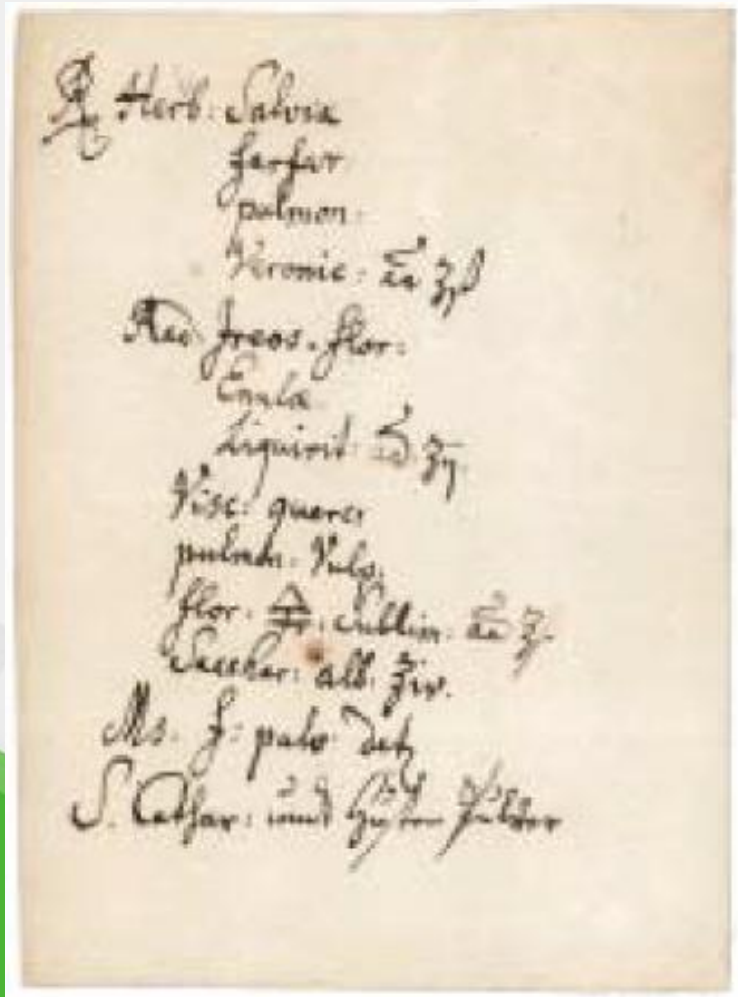 ℞ Herb: Salvia
farfar
pulmon:
Veronic: āā ʒvß
Rad Jreos. flor:
Enula
Liquirit: āā ʒij
Visc: querci
pulmon: Vulp:
flor: 🜍 Sublim: āā ʒj
Sacchar: alb: ℥iv.
Ms. f: pulv detʒ
S. Cathar: und Husten Pulver